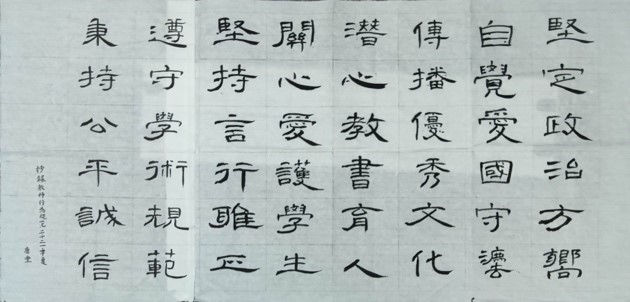 堅定政治方嚮
自覺愛國守灋
傳播優秀文化
潛心教書育人
關心愛護學生
堅持言行雅正
遵守學術規範
秉持公平誠信
抄錄教師行為